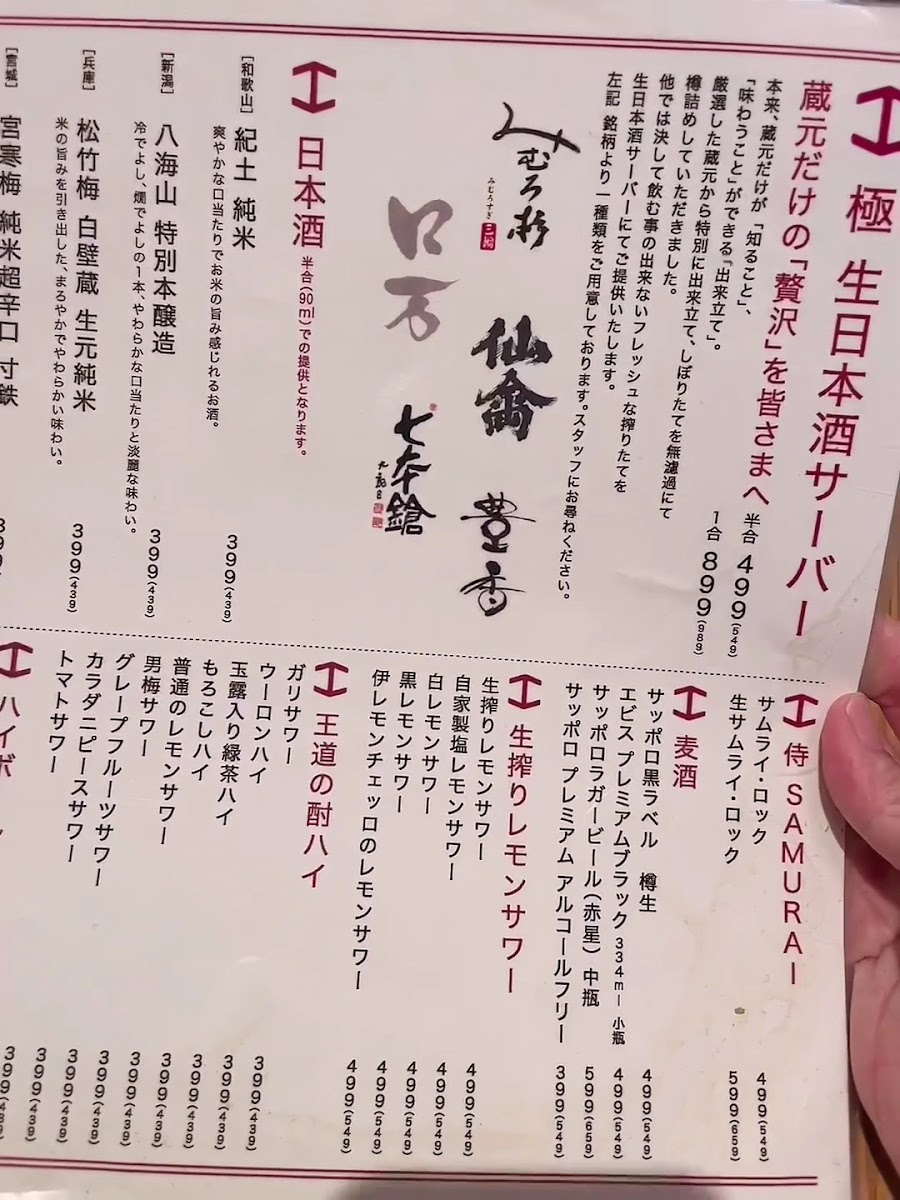 極 生日本酒サーバー
蔵元だけの「贅沢」を皆さまへ
半合 499(549)
1合 899(989)
本来、蔵元だけが「知ること」、
「味わうこと」ができる「出来立て」。
厳選した蔵元から特別に出来立て、しぼりたてを無濾過にて
樽詰めしていただきました。
他では決して飲む事の出来ないフレッシュな搾りたてを
生日本酒サーバーにてご提供いたします。
左記 銘柄より一種類をご用意しております。スタッフにお尋ねください。
みむろ杉
みむろすぎ
仙禽
豊香
ロ万
七本鎗
日本酒 半合(90ml)での提供となります。
[和歌山] 紀土 純米 399(439)
爽やかな口当たりでお米の旨み感じれるお酒。
[新潟] 八海山 特別本醸造 399(439)
冷でよし、燗でよしの1本、やわらかな口当たりと淡麗な味わい。
[兵庫] 松竹梅 白壁蔵 生元純米 399(439)
米の旨みを引き出した、まろやかでやわらかい味わい。
[宮城] 宮寒梅 純米超辛口 寸鉄
侍 SAMURAI
サムライ・ロック 499(549)
生サムライ・ロック 599(659)
麦酒
サッポロ黒ラベル 樽生 499(549)
エビス プレミアムブラック 334ml 小瓶 499(549)
サッポロラガービール(赤星) 中瓶 599(659)
サッポロ プレミアム アルコールフリー 399(549)
生搾りレモンサワー
生搾りレモンサワー 499(549)
自家製塩レモンサワー 499(549)
白レモンサワー 499(549)
黒レモンサワー 499(549)
伊レモンチェッロのレモンサワー 499(549)
王道の酎ハイ
ガリサワー 399(439)
ウーロンハイ 399(439)
玉露入り緑茶ハイ 399(439)
もろこしハイ 399(439)
普通のレモンサワー 399(439)
男梅サワー 399(439)
グレープフルーツサワー 399(439)
カラダニピースサワー 399(439)
トマトサワー 399(439)
ハイボ